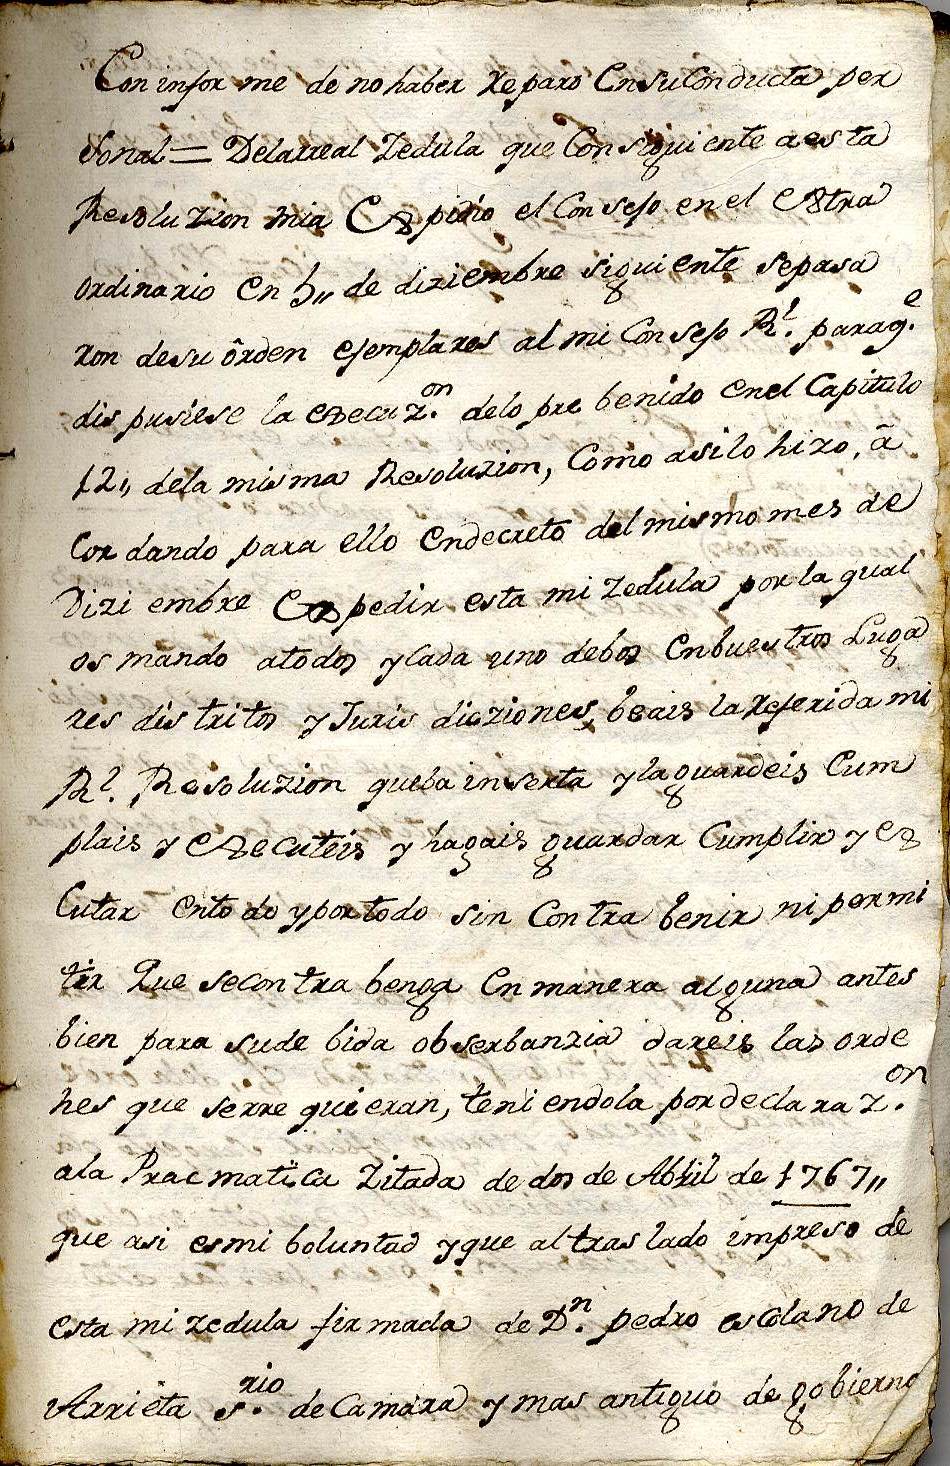 Con infor me de no haber Reparo Ensu Conducta per
sonal = Dela rreal Zedula que Consiguiente a esta
Resoluzion mia Expidio el Consejo en el Extra
ordinario en 5,, de diziembre siguiente se pasa
ron de su orden ejemplares al mi Consejo Rl. para qe.
dis pusiese la execuzon. delo pre benido en el Capitulo
12,, dela misma Resoluzion, Como asi lo hizo, a
Cor dando para ello En decreto del mismo mes de
Dizi embre Expedir esta mi Zedula por la qual
os mando atodos y Cada uno debos En buestros Luga
res distritos y Juris dicziones, beais la Referida mi
Rl. Resoluzion que ba inserta y la guardeis Cum
plais y Executeis y hagais guardar Cumplir y Ex
Cutar en to do y por todo sin Contra benir ni permi
tir Que se contra benga En manera alguna antes
bien para su de bida obserbanzia dareis las orde
nes que se rre quieran, teni endola por declarazon.
ala Pracmatica Zitada de dos de Abril de 1767,,
que asi es mi boluntad y que al tras lado impreso de
esta mi zedula firmada de Dn. pedro escolano de
Arrieta Srio. de Camara y mas antiguo de gobierno